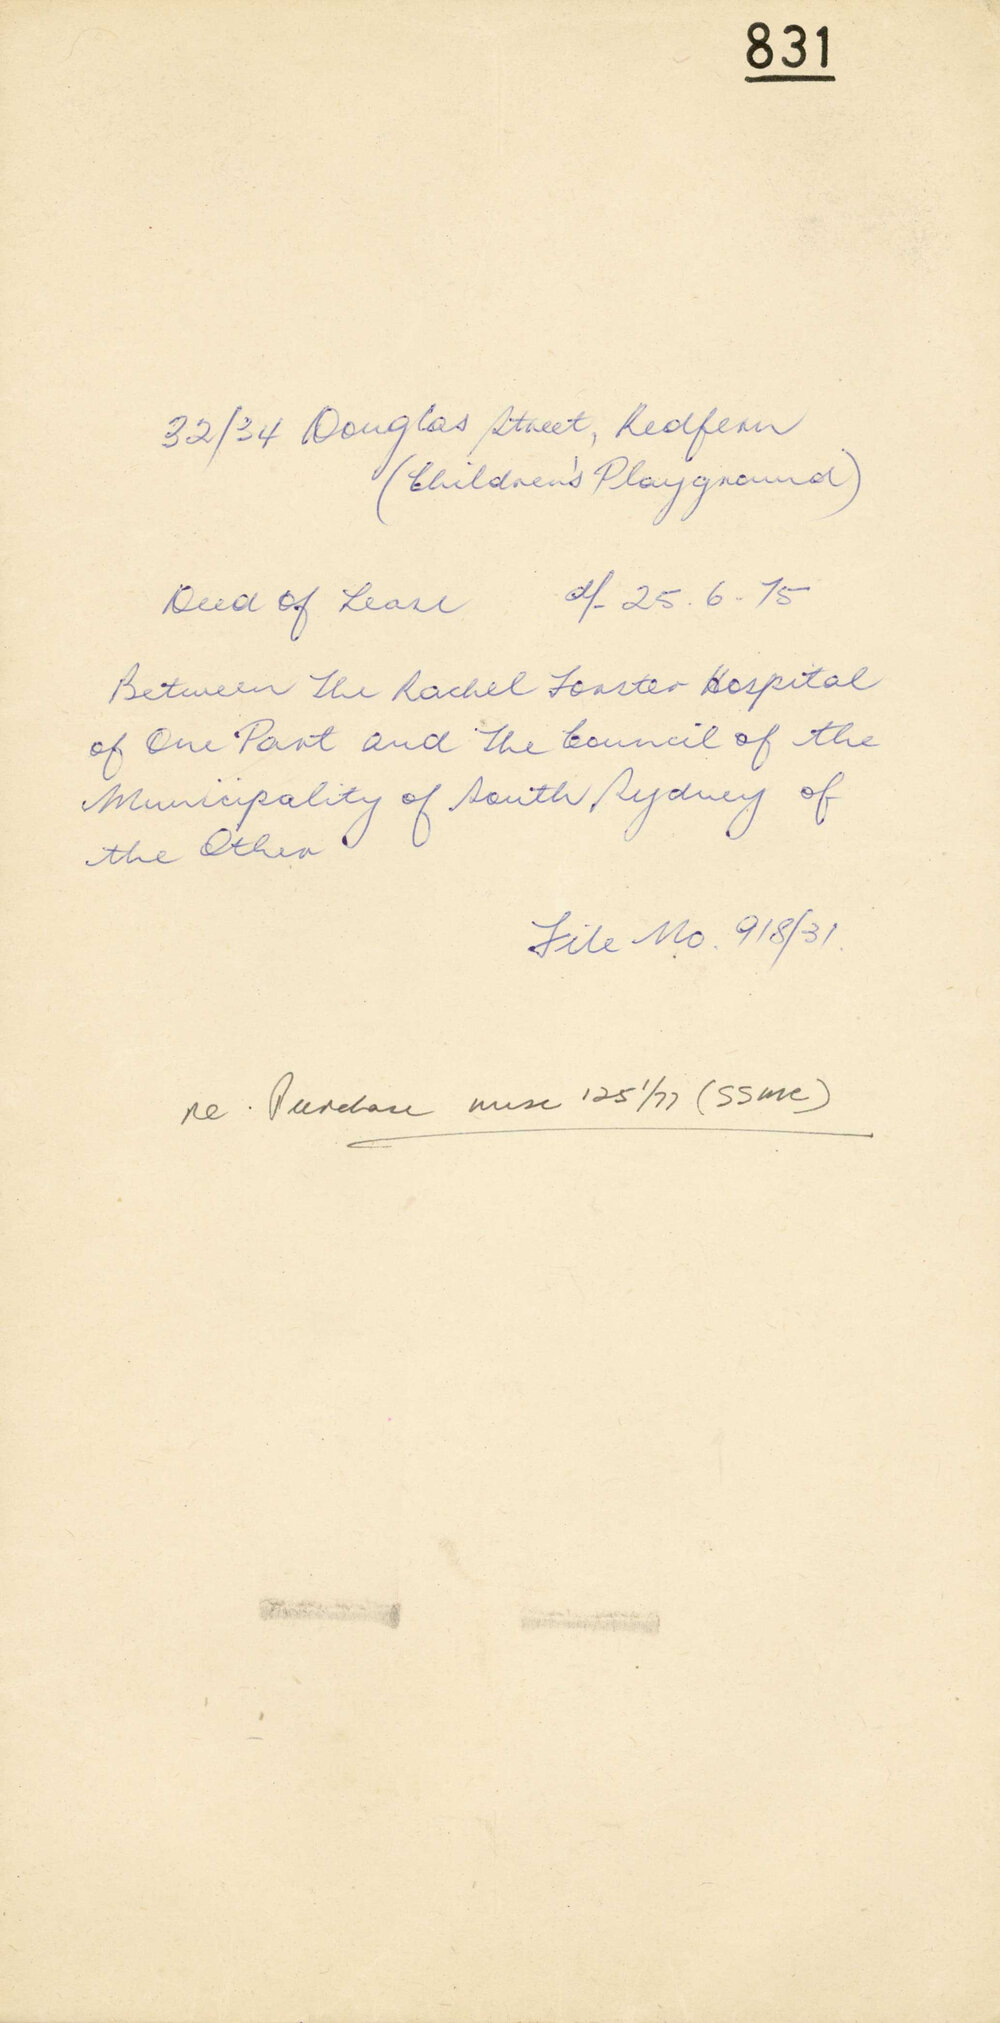 831
32/34 Douglas Street, Redfern
(Children's Playground)
Deed of Lease d/- 25.6.75
Between The Rachel Forster Hospital
of One Part and The Council of the
Municipality of South Sydney of
the Other
File No. 918/31.
re. Purchase (SSMC)